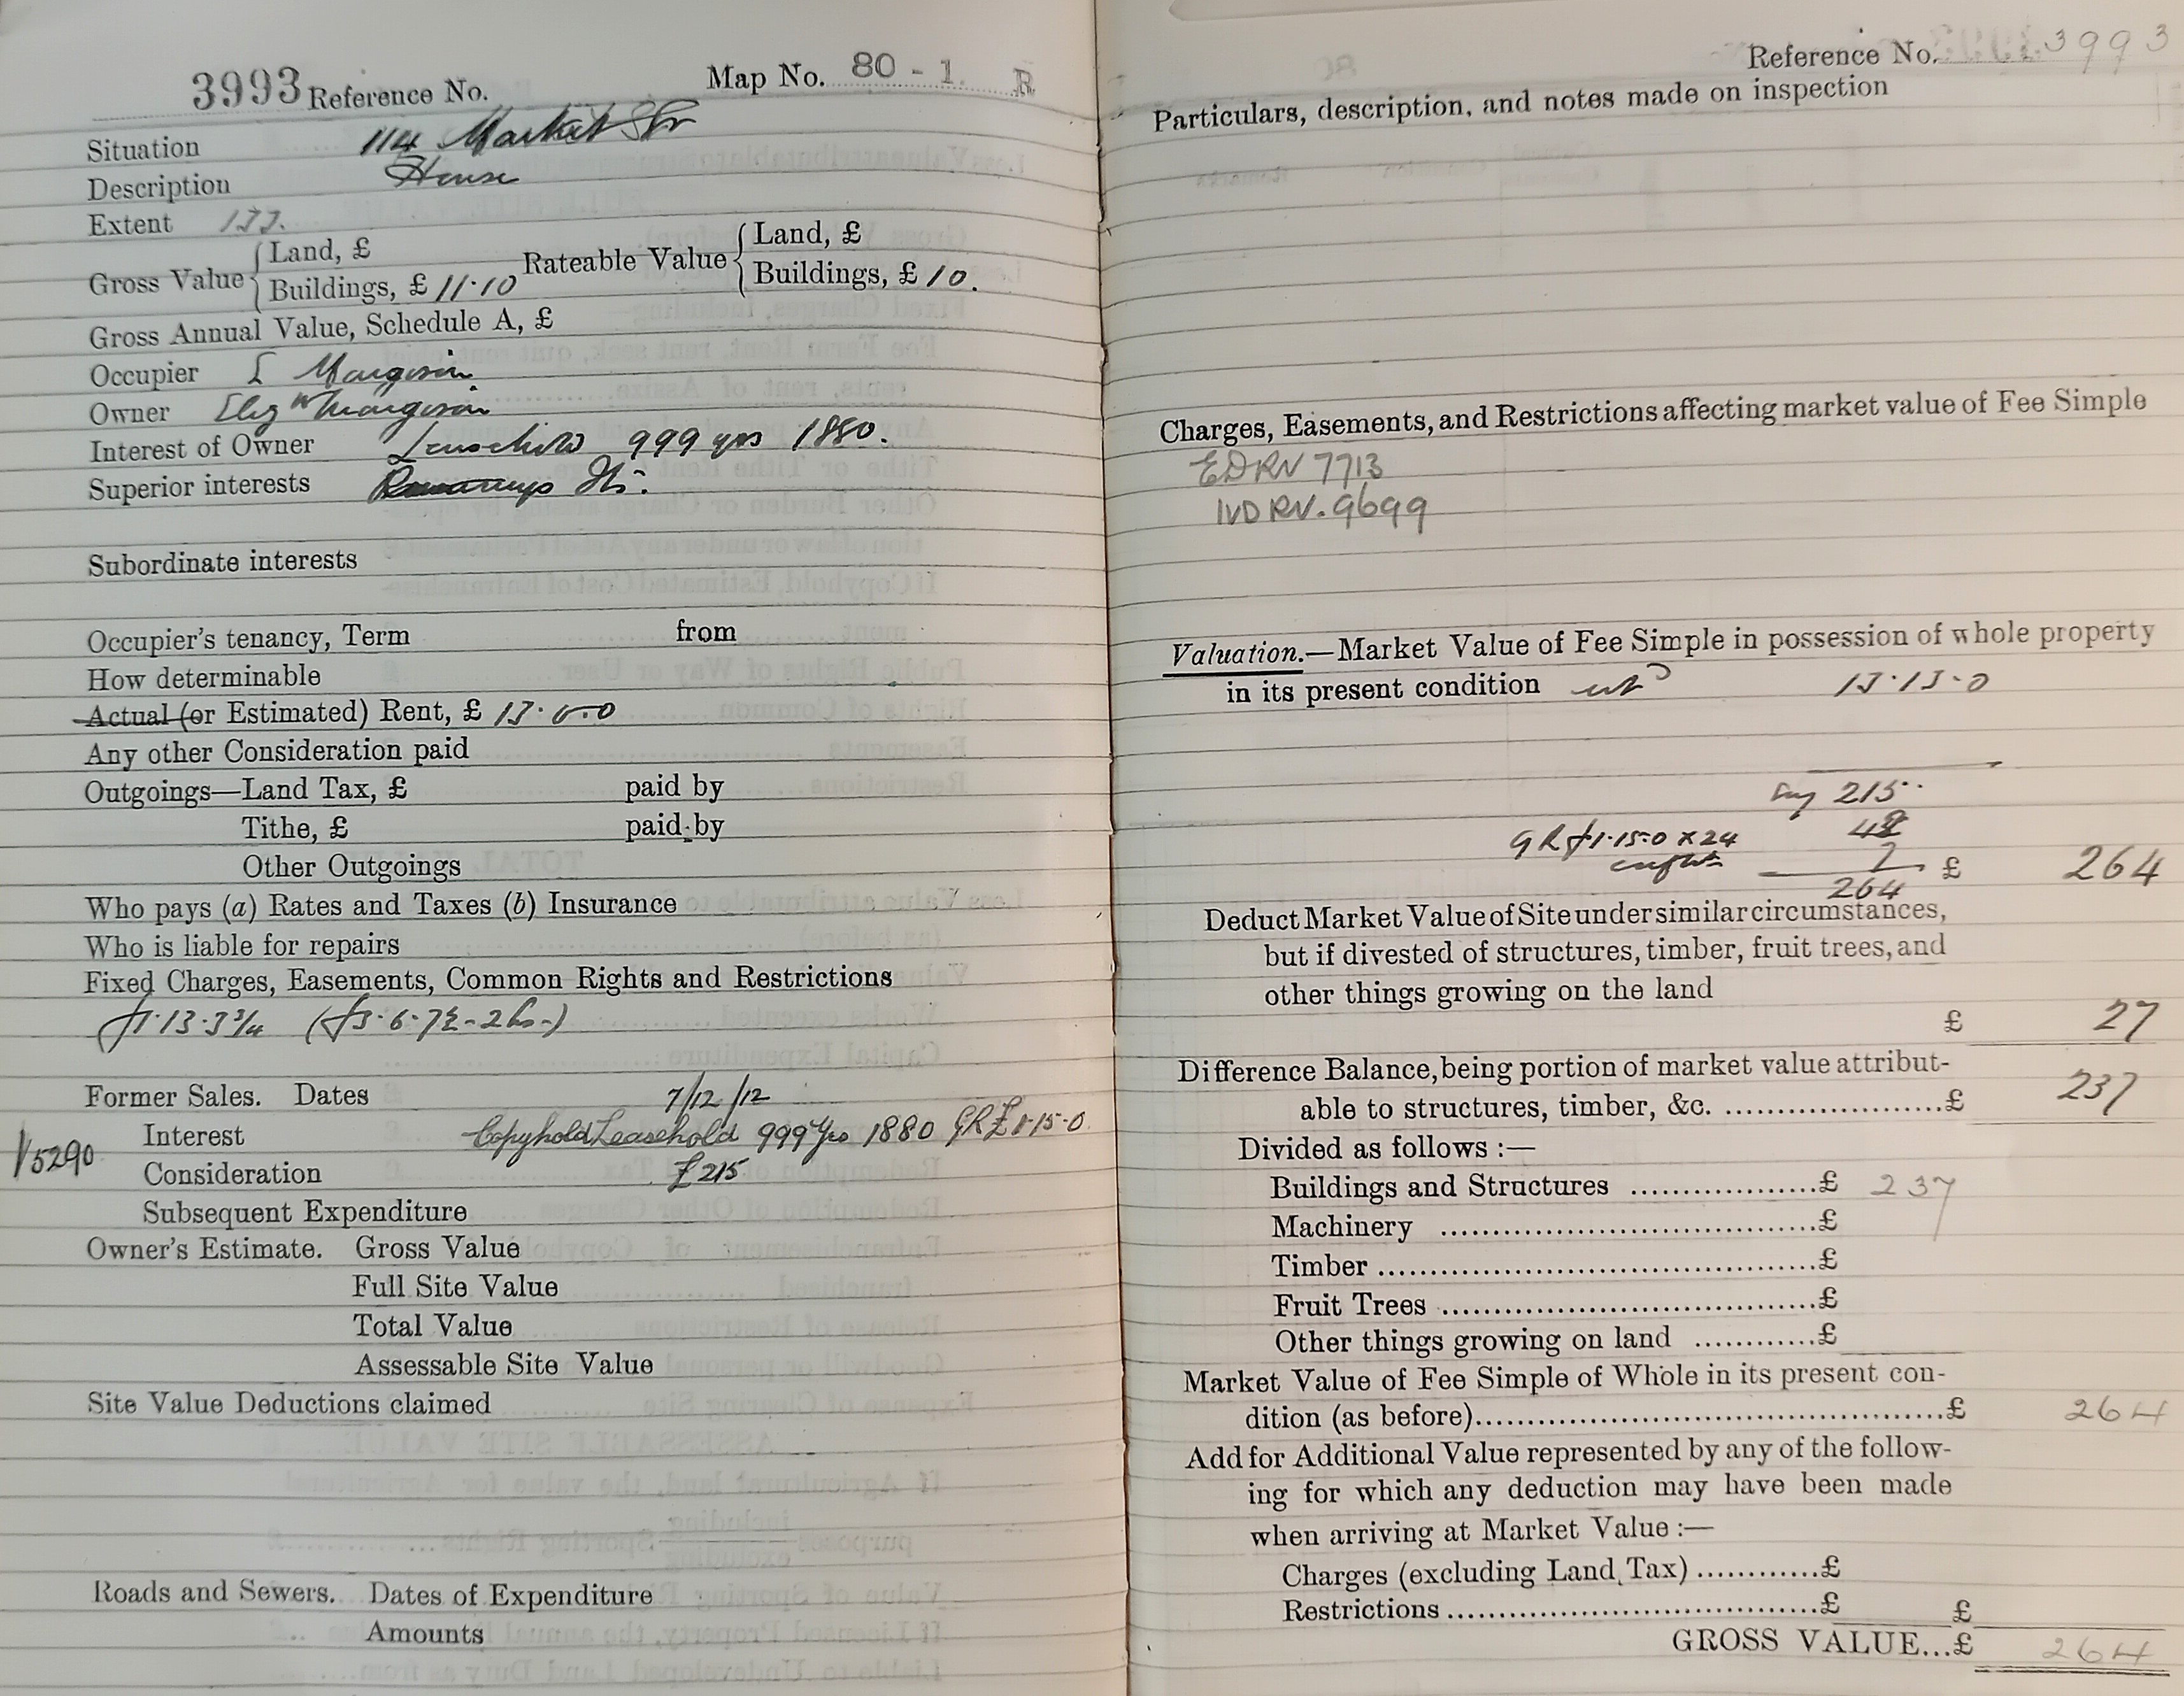 3993 Reference No. Map No. 80 - 1. R
Situation 114 Market Str
Description House
Extent
Gross Value { Land, £
Buildings, £ 11.10
Rateable Value { Land, £
Buildings, £ 10.
Gross Annual Value, Schedule A, £
Occupier Margison
Owner Eliz th Margison
Interest of Owner Leasehold 999 yrs 1880.
Superior interests
Subordinate interests
Occupier's tenancy, Term from
How determinable
Actual (or Estimated) Rent, £
Any other Consideration paid
Outgoings—Land Tax, £ paid by
Tithe, £ paid by
Other Outgoings
Who pays (a) Rates and Taxes (b) Insurance
Who is liable for repairs
Fixed Charges, Easements, Common Rights and Restrictions
£1.13.3¾ (£3.6.7½ - 2 hos)
Former Sales. Dates 7/12/12
Interest Copyhold Leasehold 999 Yrs 1880 GR £1-15-0
5290
Consideration £215
Subsequent Expenditure
Owner's Estimate. Gross Value
Full Site Value
Total Value
Assessable Site Value
Site Value Deductions claimed
Roads and Sewers. Dates of Expenditure
Amounts
Reference No. 3993
Particulars, description, and notes made on inspection
Charges, Easements, and Restrictions affecting market value of Fee Simple
EDRV 7713
IVD RV. 9699
Valuation.—Market Value of Fee Simple in possession of whole property
in its present condition
Say 215
GR £1.15.0 x 24 42
£ 264
264
Deduct Market Value of Site under similar circumstances,
but if divested of structures, timber, fruit trees, and
other things growing on the land
£ 27
Difference Balance, being portion of market value attribut-
able to structures, timber, &c. ......................£ 237
Divided as follows :—
Buildings and Structures ...................£ 237
Machinery ......................................£
Timber ............................................£
Fruit Trees ......................................£
Other things growing on land ............£
Market Value of Fee Simple of Whole in its present con-
dition (as before)................................................£ 264
Add for Additional Value represented by any of the follow-
ing for which any deduction may have been made
when arriving at Market Value :—
Charges (excluding Land Tax) ............£
Restrictions ......................................£ £
GROSS VALUE...£ 264